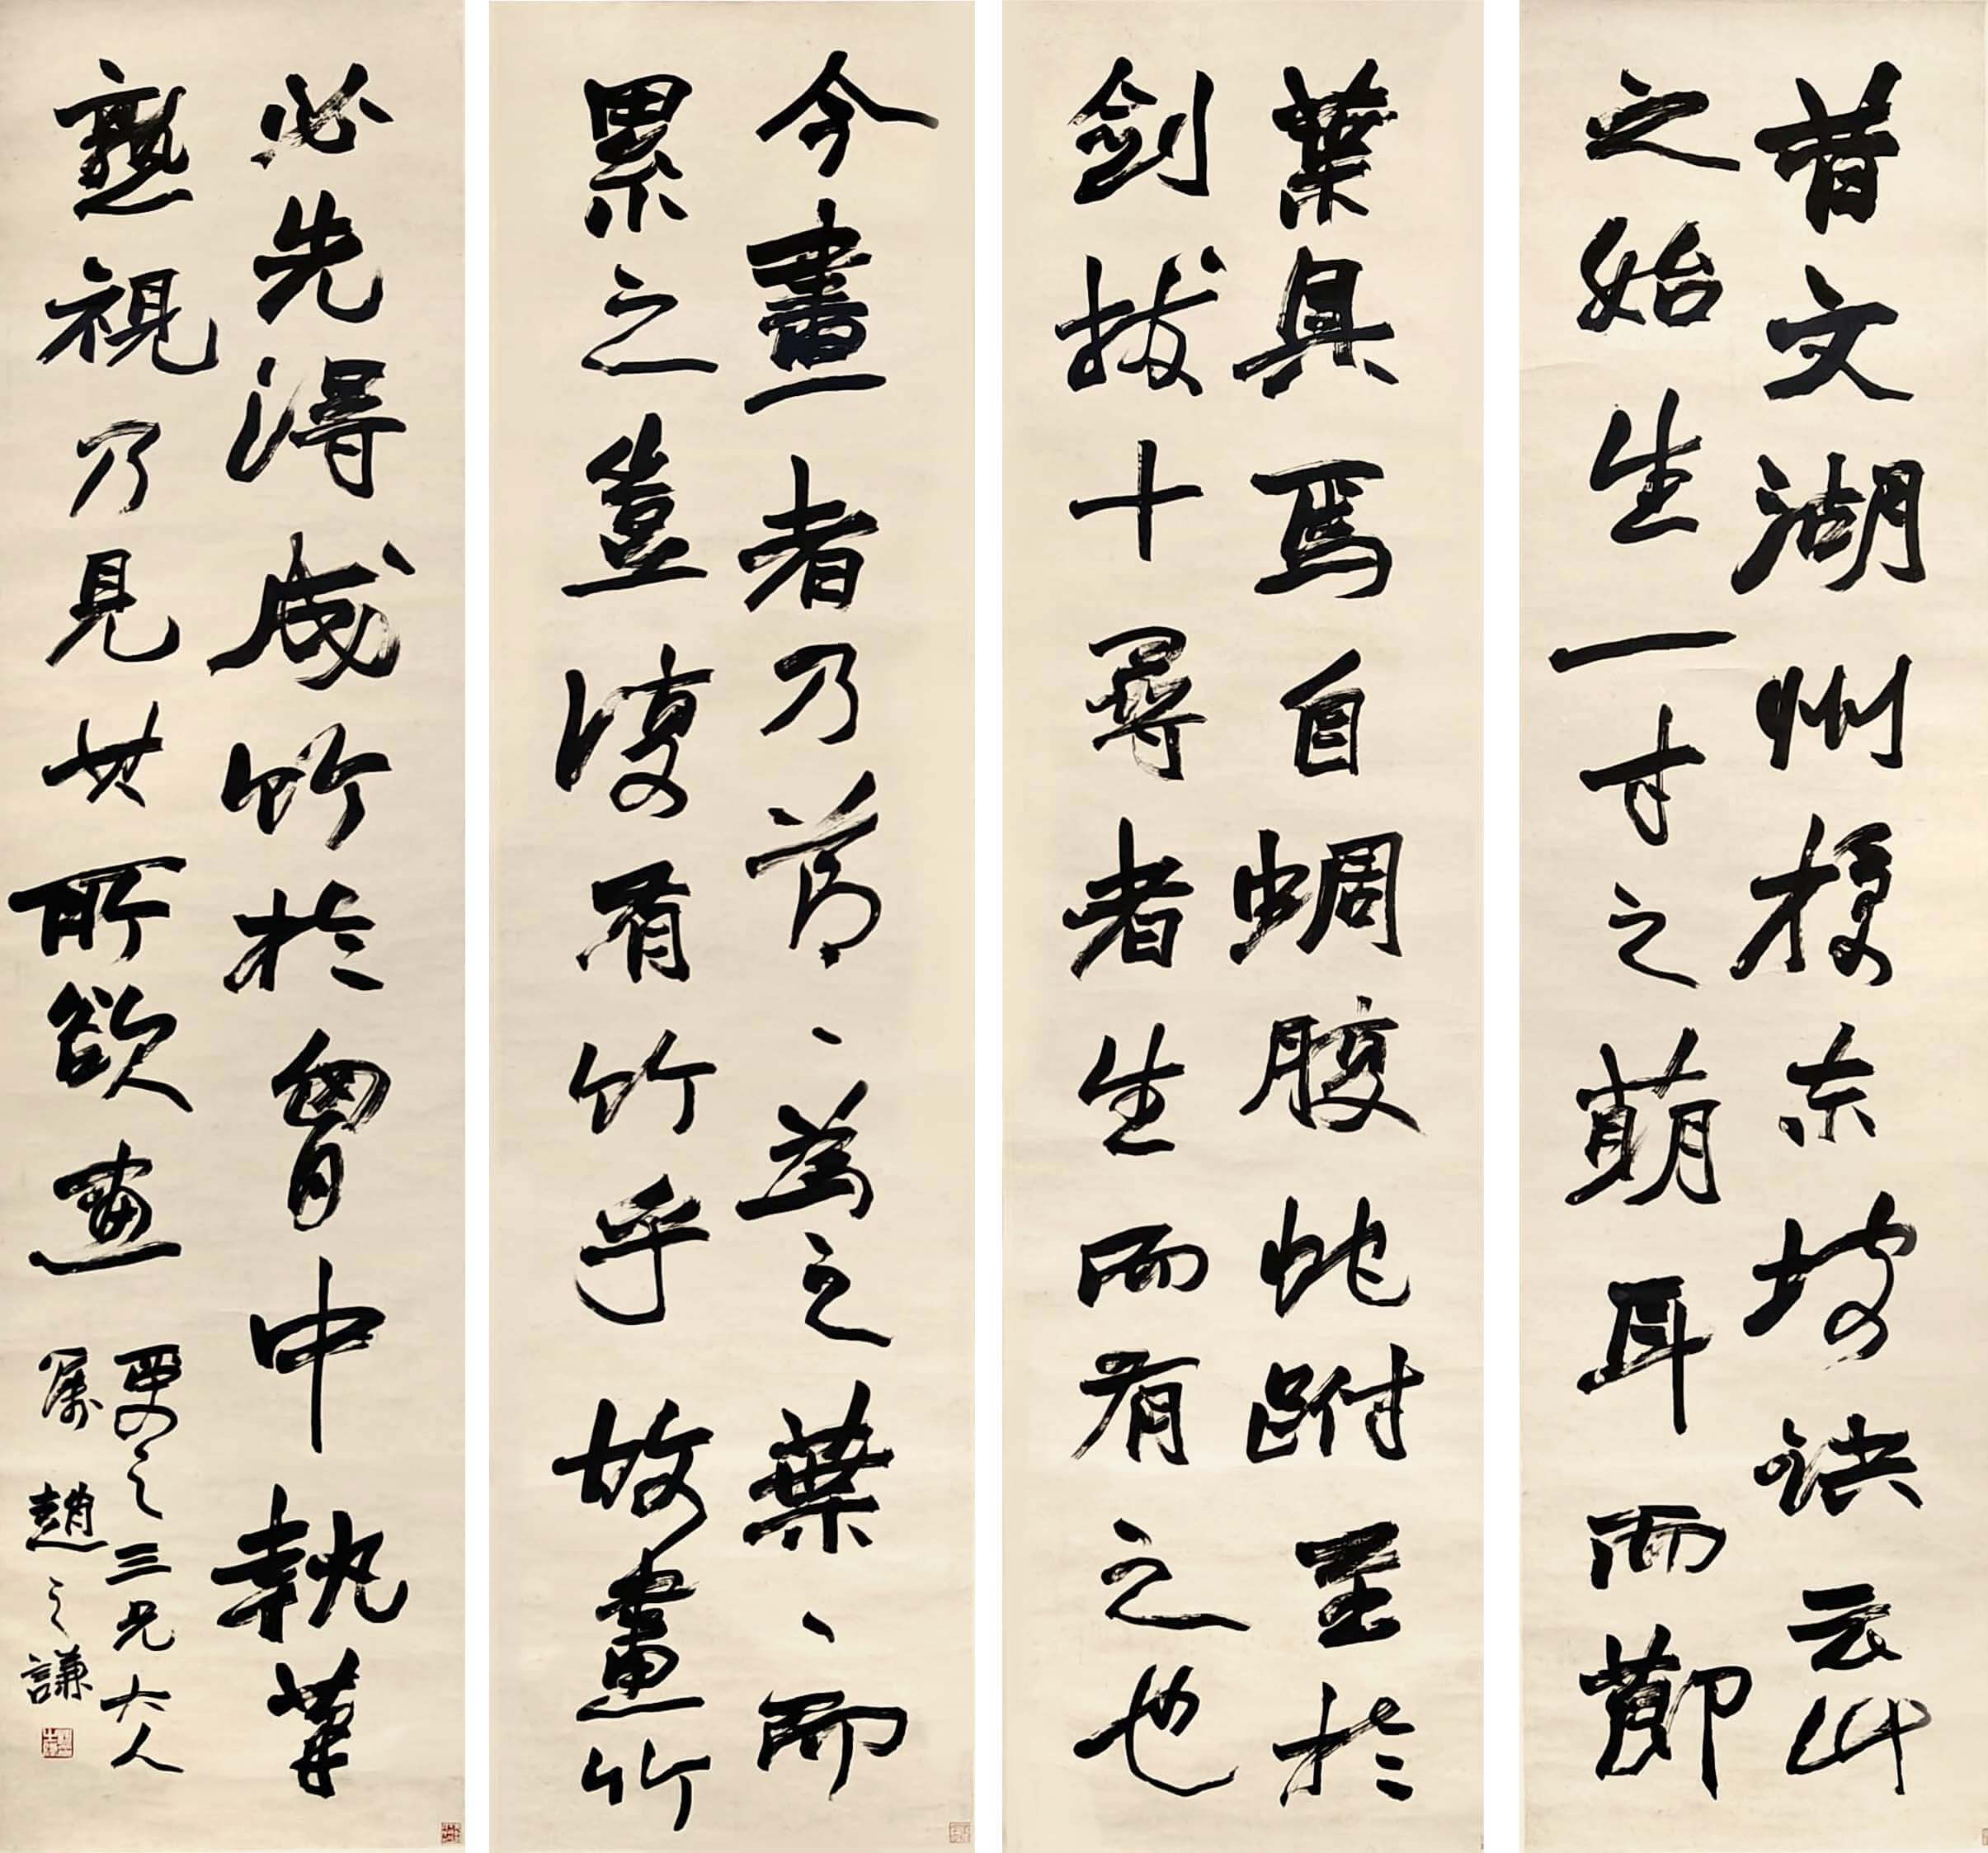 昔文湖州授東坡訣云竹
之始生一寸之萌耳而節
葉具焉自蜩腹蛇跗至於
劍拔十尋者生而有之也
今畫者乃節〻為之葉〻而
累之豈復有竹乎故畫竹
必先得成竹於胷中執筆
熟視乃見其所欲畫
栗之三兄大人
屬 趙之謙